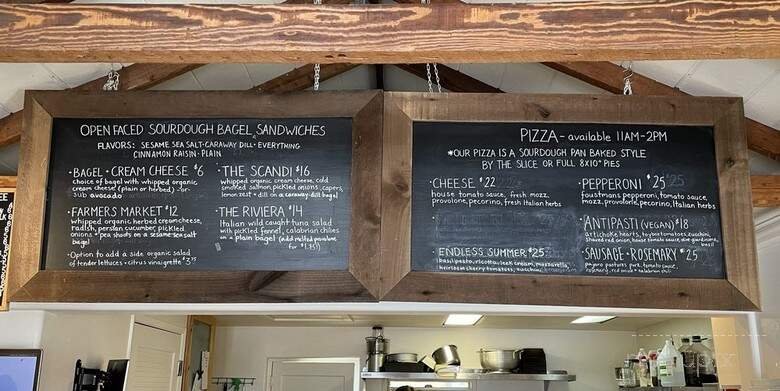 OPEN FACED SOURDOUGH BAGEL SANDWICHES
FLAVORS: SESAME SEA SALT·CARAWAY DILL·EVERYTHING
CINNAMON RAISIN·PLAIN
·BAGEL + CREAM CHEESE $6
choice of bagel with whipped organic
cream cheese (plain or herbed) -or-
sub avocado
·FARMERS MARKET $12
whipped organic herbed cream cheese,
radish, persian cucumber, pickled
onions + pea shoots on a sesame sea salt
bagel
·Option to add a side organic salad
of tender lettuces + citrus vinaigrette $3.75
·THE SCANDI $16
whipped organic cream cheese, cold
smoked salmon, pickled onions, capers,
lemon zest + dill on a caraway-dill bagel
·THE RIVIERA $14
Italian wild caught tuna salad
with pickled fennel, calabrian chilies
on a plain bagel (add melted provolone
for $1.75!)
PIZZA - available 11AM-2PM
*OUR PIZZA IS A SOURDOUGH PAN BAKED STYLE
BY THE SLICE OR FULL 8X10" PIES
·CHEESE $22
house tomato sauce, fresh mozz,
provolone, pecorino, fresh Italian herbs
·ENDLESS SUMMER $25
basil pesto, ricotta, cream, mozzarella,
heirloom cherry tomatoes, zucchini
·PEPPERONI $25
foustmans pepperoni, tomato sauce,
mozz, provolone, pecorino, Italian herbs
·ANTIPASTI (VEGAN) $18
artichoke hearts, toybox tomatoes, zucchini,
shaved red onion, house tomato sauce,
basil
·SAUSAGE + ROSEMARY $25
pork, tomato sauce,
rosemary, red onion + calabrian chili